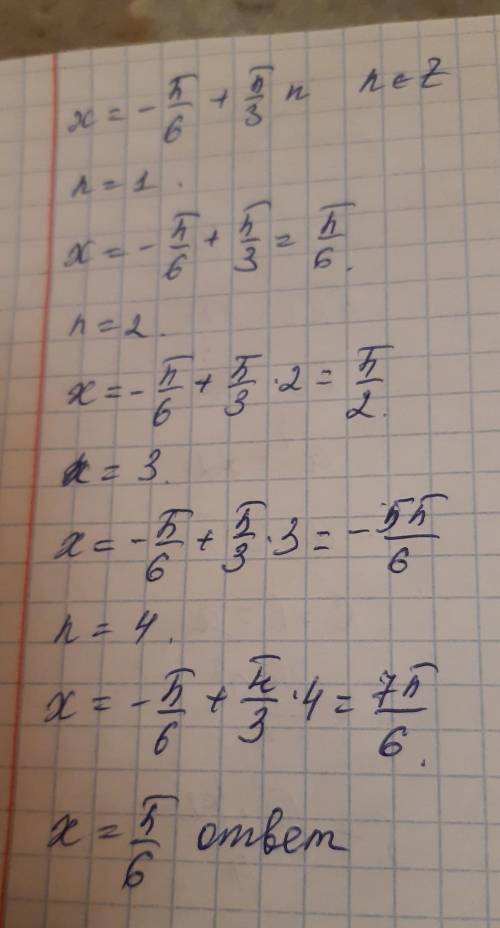 x = -π/6 + π/3 n n ∈ Z
n = 1.
x = -π/6 + π/3 = π/6.
n = 2.
x = -π/6 + π/3 · 2 = π/2.
n = 3.
x = -π/6 + π/3 · 3 = -5π/6
n = 4.
x = -π/6 + π/3 · 4 = 7π/6.
x = π/6 ответ